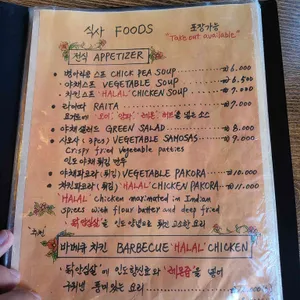 식사 FOODS
포장가능
"Take out available"
전식 APPETIZER
병아리콩 스프 CHICK PEA SOUP ₩ 6.000
야채스프 VEGETABLE SOUP ₩ 6.500
치킨스프 'HALAL' CHICKEN SOUP ₩ 7.000
라이타 RAITA ₩ 7.000
요거트에 오이, 양파, 넣은 소스
야채 샐러드 GREEN SALAD ₩ 8.000
사모사 (3Pcs) VEGETABLE SAMOSAS ₩ 9.000
Crispy fried vegetable patties
인도 야채 튀김 만두
야채파코라 (튀김) VEGETABLE PAKORA ₩ 10.000
치킨파코라 (튀김) 'HALAL' CHICKEN PAKORA ₩ 11.000
'HALAL' chicken marinated in Indian
spices with flour batter and deep fried
인도 양념으로 튀긴 고소한 요리
바베큐 치킨 BARBECUE 'HALAL' CHICKEN
"닭안심살"에 인도향신료와 "레몬즙"을 넣어
구워낸 풍미있는 요리